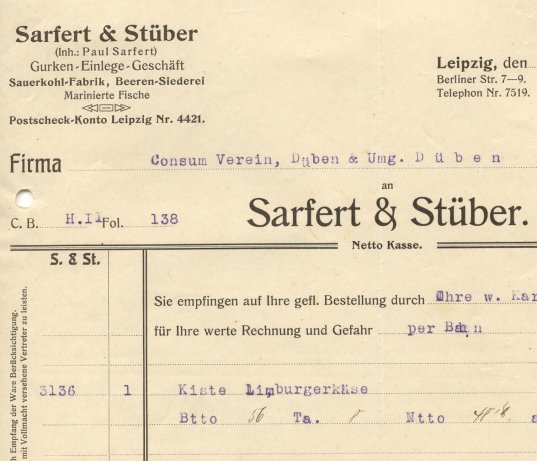 Sarfert & Stüber
(Inh.: Paul Sarfert)
Gurken-Einlege-Geschäft
Sauerkohl-Fabrik, Beeren-Siederei
Marinierte Fische
Postscheck-Konto Leipzig Nr. 4421.
Leipzig, den
Berliner Str. 7—9.
Telephon Nr. 7519.
Firma Consum Verein, Düben & Umg. Düben
an
C. B. H.II Fol. 138 Sarfert & Stüber.
Netto Kasse.
S. & St.
Sie empfingen auf Ihre gefl. Bestellung durch Ihre w. Kar
für Ihre werte Rechnung und Gefahr per Bahn
3136 1 Kiste Limburgerkäse
Btto 56 Ta. 8 Ntto
h Empfang der Ware Berücksichtigung.
mit Vollmacht versehene Vertreter zu leisten.